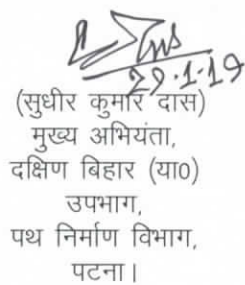 29.1.19
(सुधीर कुमार दास)
मुख्य अभियंता,
दक्षिण बिहार (या0)
उपभाग,
पथ निर्माण विभाग,
पटना।